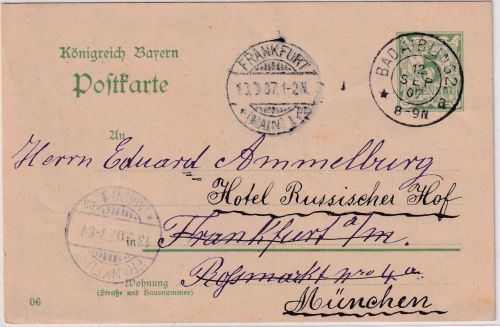 Königreich Bayern
Postkarte
FRANKFURT
13.9.07.1-2N.
* (MAIN) 1.
BAD AIBLING
12
SEP
07
8-9N
An
Herrn Eduard Ammelburg
Hotel Russischer Hof
in Frankfurt a/m.
Rossmarkt nro 4 a.
Wohnung
(Straße und Hausnummer)
München
06
FRANKFURT